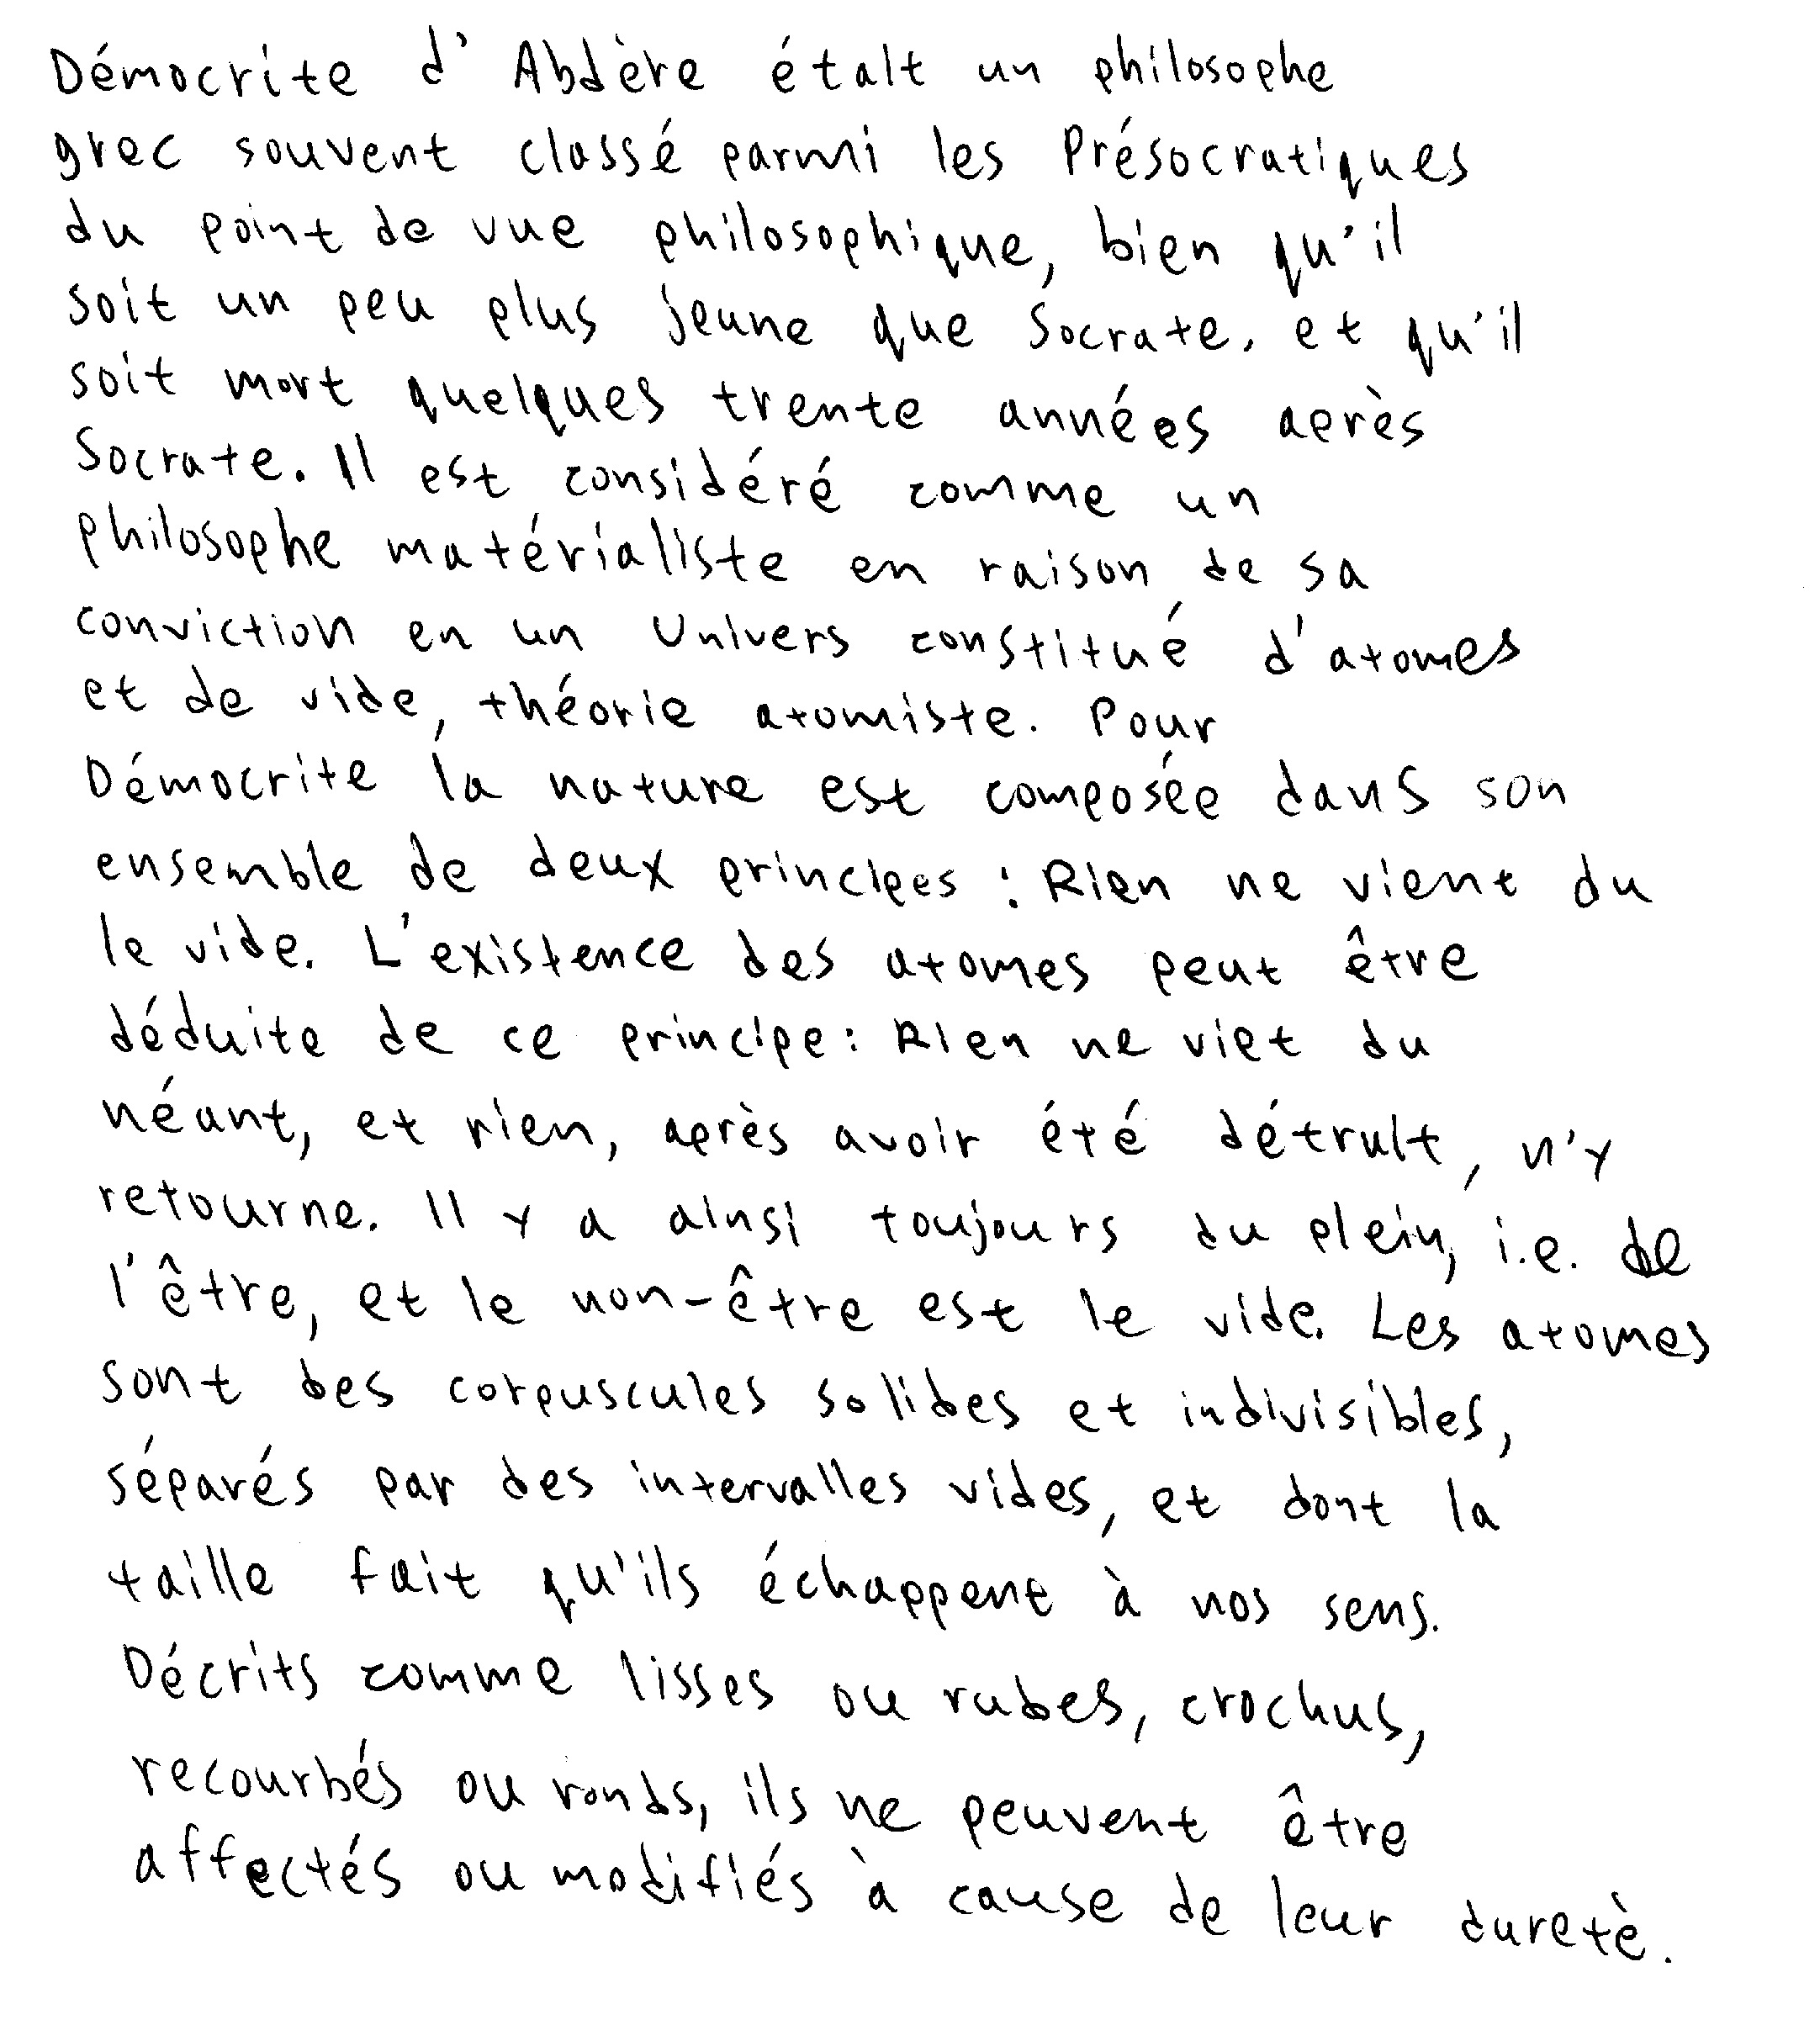 Démocrite d'Abdère était un philosophe
grec souvent classé parmi les Présocratiques
du point de vue philosophique, bien qu'il
soit un peu plus jeune que Socrate, et qu'il
soit mort quelques trente années après
Socrate. Il est considéré comme un
philosophe matérialiste en raison de sa
conviction en un Univers constitué d'atomes
et de vide, théorie atomiste. Pour
Démocrite la nature est composée dans son
ensemble de deux principes : Rien ne vient du
le vide. L'existence des atomes peut être
déduite de ce principe: Rien ne viet du
néant, et rien, après avoir été détruit, n'y
retourne. Il y a ainsi toujours du plein, i.e. de
l'être, et le non-être est le vide. Les atomes
sont des corpuscules solides et indivisibles,
séparés par des intervalles vides, et dont la
taille fait qu'ils échappent à nos sens.
Décrits comme lisses ou rudes, crochus,
recourbés ou ronds, ils ne peuvent être
affectés ou modifiés à cause de leur duretè.